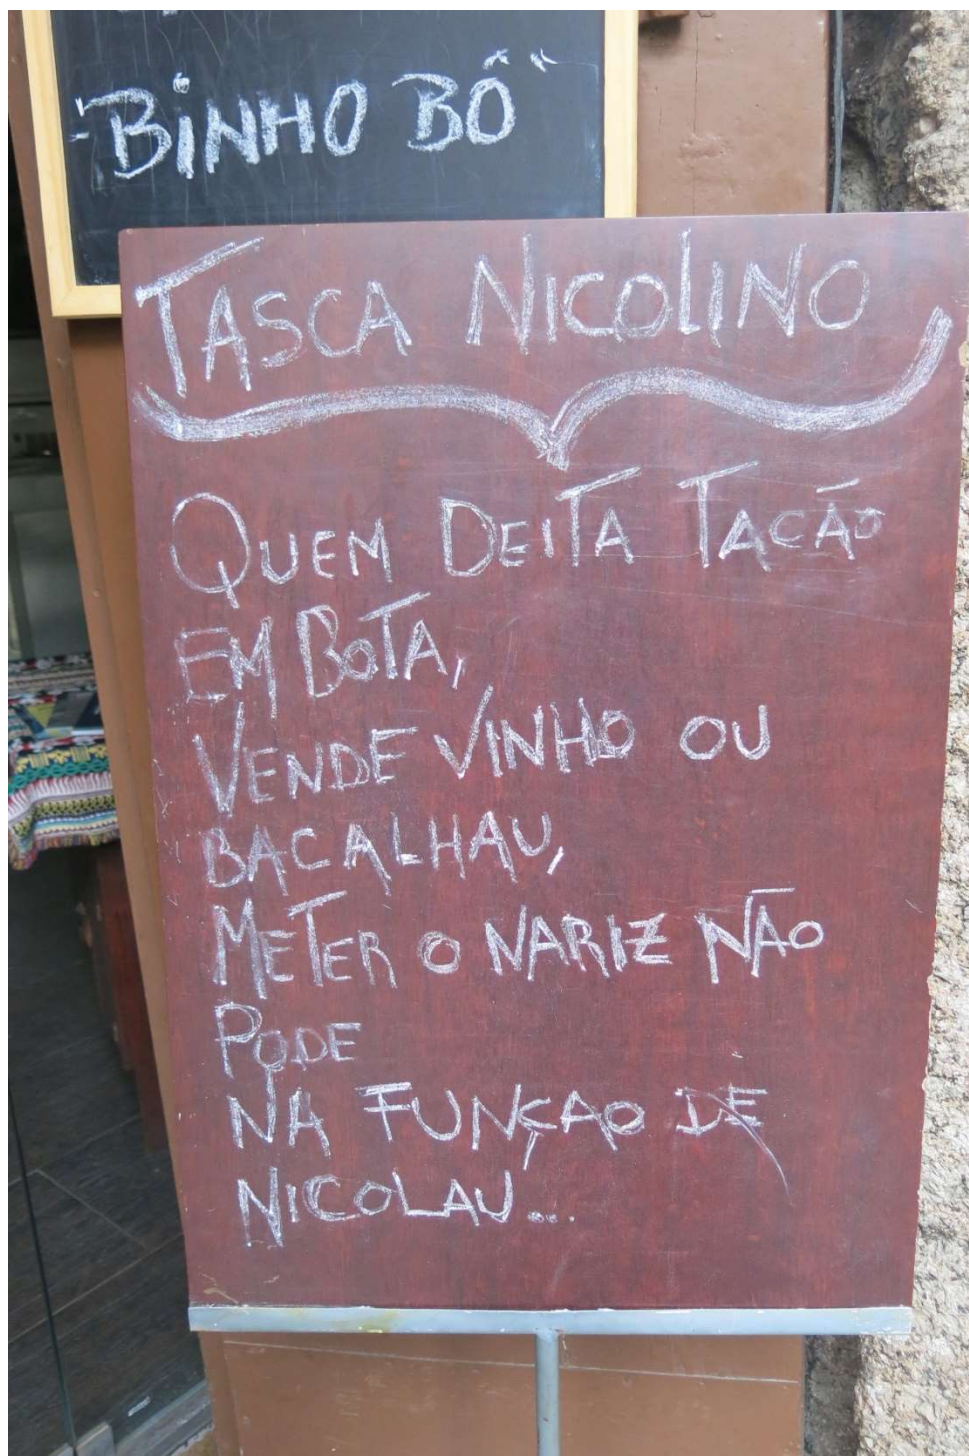 "BINHO BÔ"
TASCA NICOLINO
QUEM DEITA TACÃO
EM BOTA,
VENDE VINHO OU
BACALHAU,
METER O NARIZ NÃO
PODE
NA FUNÇAO DE
NICOLAU...